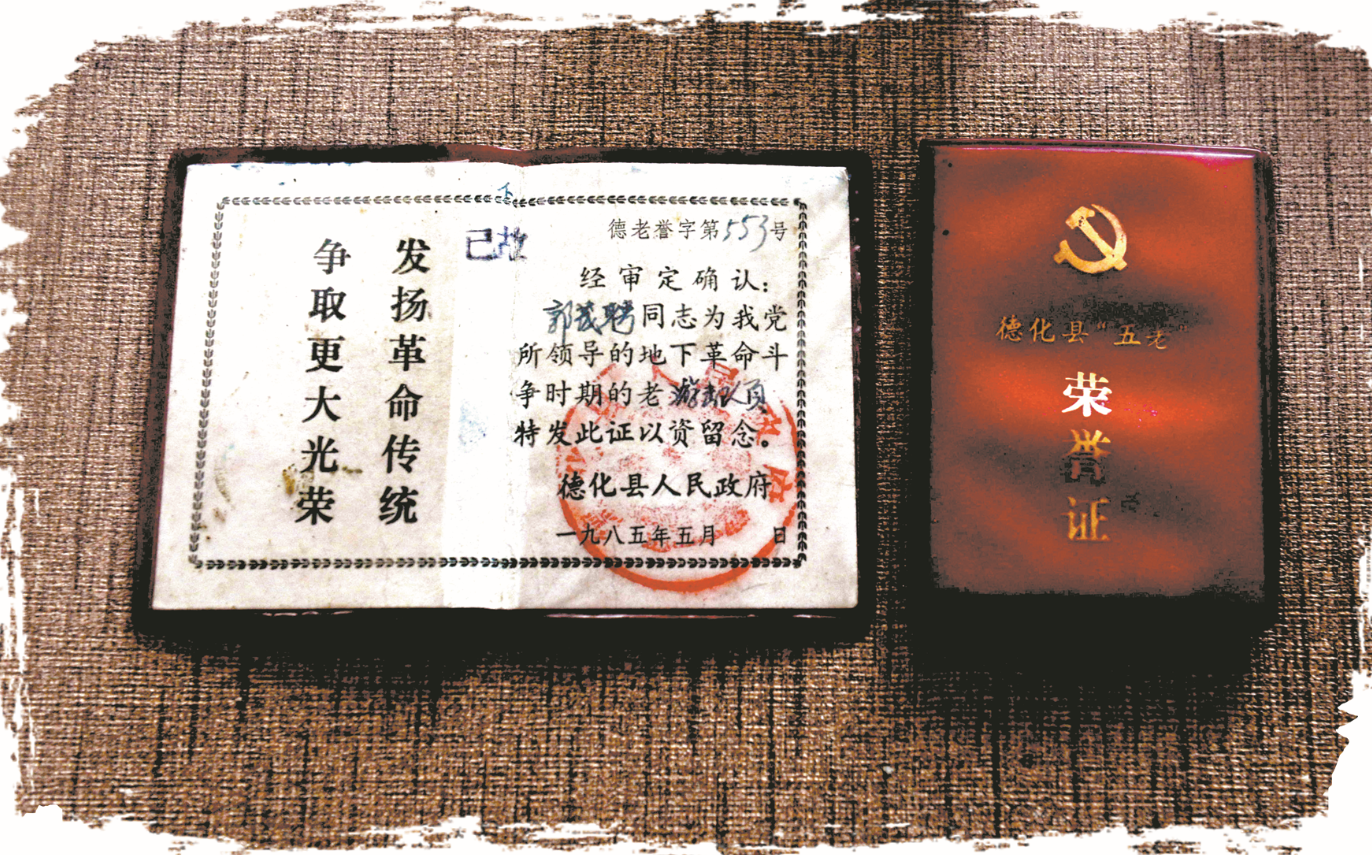 发扬革命传统
争取更大光荣
已故
德老誉字第553号
经审定确认：
郭茂聘同志为我党
所领导的地下革命斗
争时期的老游击队员
特发此证以资留念。
德化县人民政府
一九八五年五月 日
德化县“五老”
荣
誉
证